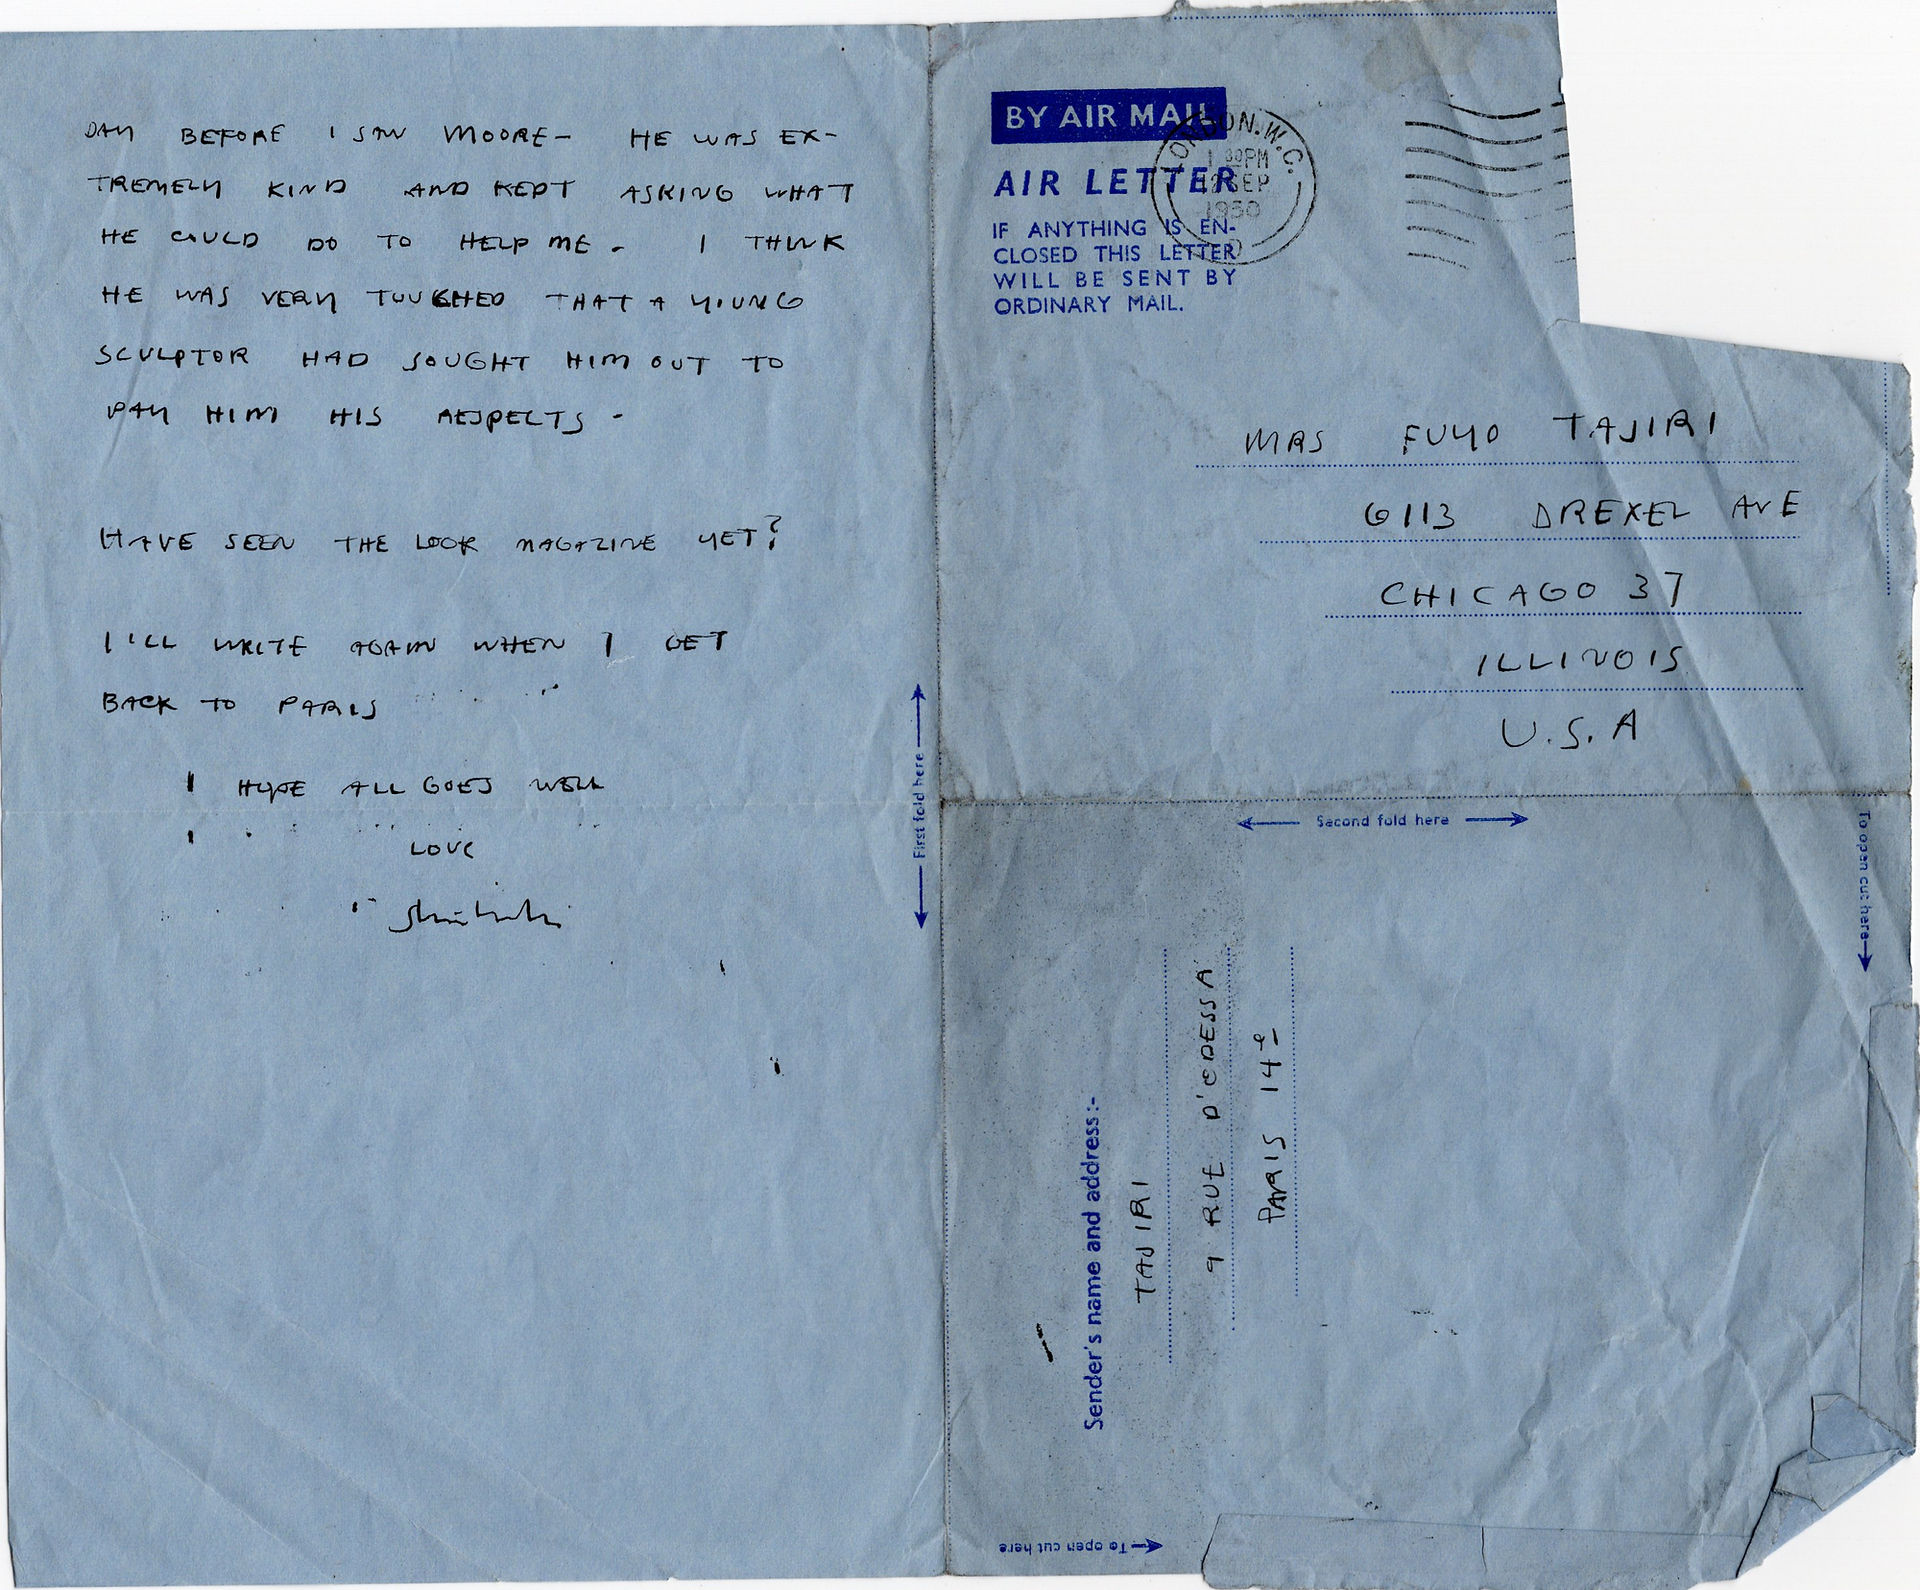 DAY BEFORE I SAW MOORE — HE WAS EX-
TREMELY KIND AND KEPT ASKING WHAT
HE COULD DO TO HELP ME - I THINK
HE WAS VERY TOUCHED THAT A YOUNG
SCULPTOR HAD SOUGHT HIM OUT TO
PAY HIM HIS RESPECTS -
HAVE SEEN THE LOOK MAGAZINE YET?
I'LL WRITE AGAIN WHEN I GET
BACK TO PARIS
I HOPE ALL GOES WELL
LOVE
Shinkichi
First fold here
BY AIR MAIL
AIR LETTER
IF ANYTHING IS EN-
CLOSED THIS LETTER
WILL BE SENT BY
ORDINARY MAIL.
LONDON. W.C.
SEP
1950
MRS FUYO TAJIRI
6113 DREXEL AVE
CHICAGO 37
ILLINOIS
U.S.A
Second fold here
To open cut here
Sender's name and address:-
TAJIRI
9 RUE D'ODESSA
PARIS 14e
To open cut here